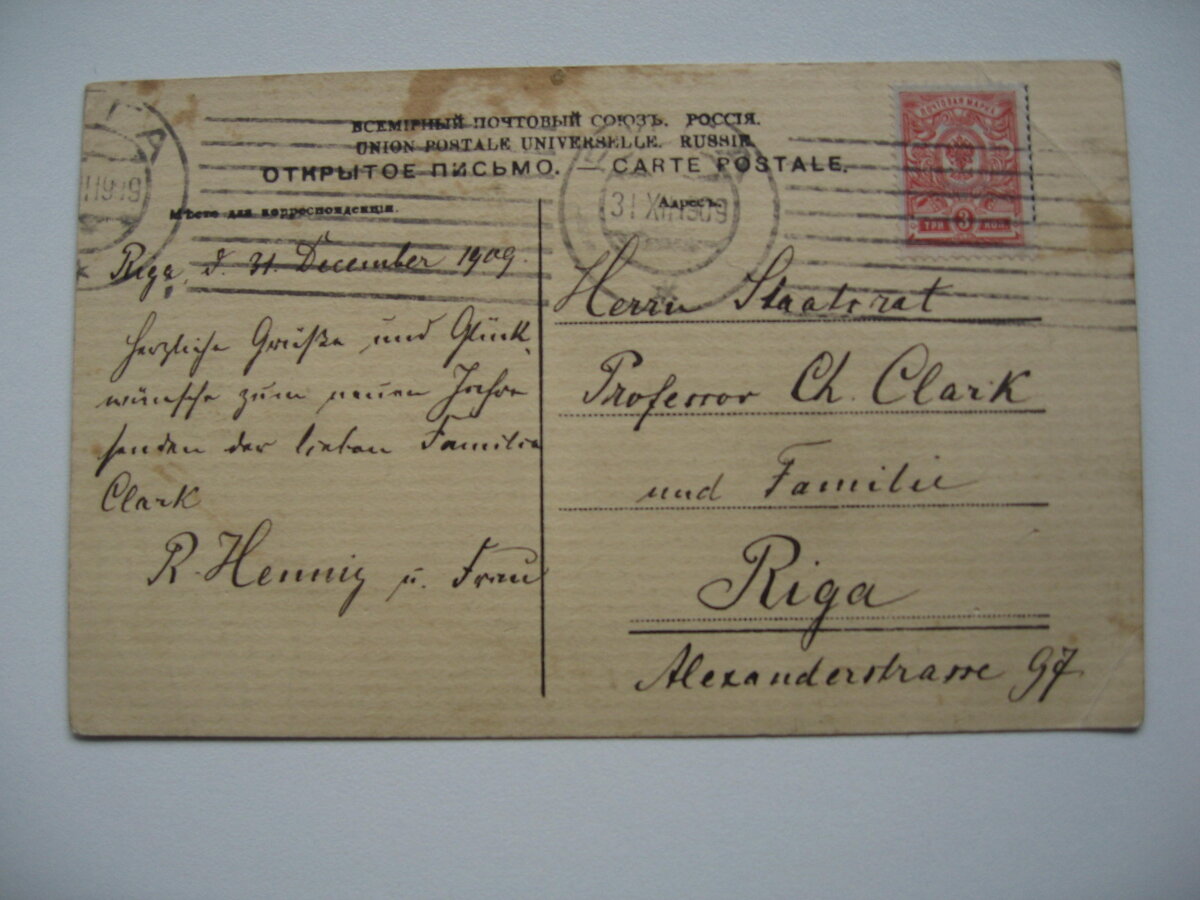 ВСЕМІРНЫЙ ПОЧТОВЫЙ СОЮЗЪ. РОССІЯ.
UNION POSTALE UNIVERSELLE. RUSSIE.
ОТКРЫТОЕ ПИСЬМО. — CARTE POSTALE.
Мѣсто для корреспонденціи.
Адресъ.
ПОЧТОВАЯ МАРКА
ТРИ 3 КОП.
31 XII 1909
Riga, d. 31. December 1909.
Herzliche Grüße und Glück-
wünsche zum neuen Jahre
senden der lieben Familie
Clark
R. Hennig u. Frau
Herrn Staatsrat
Professor Ch. Clark
und Familie
Riga
Alexanderstrasse 97